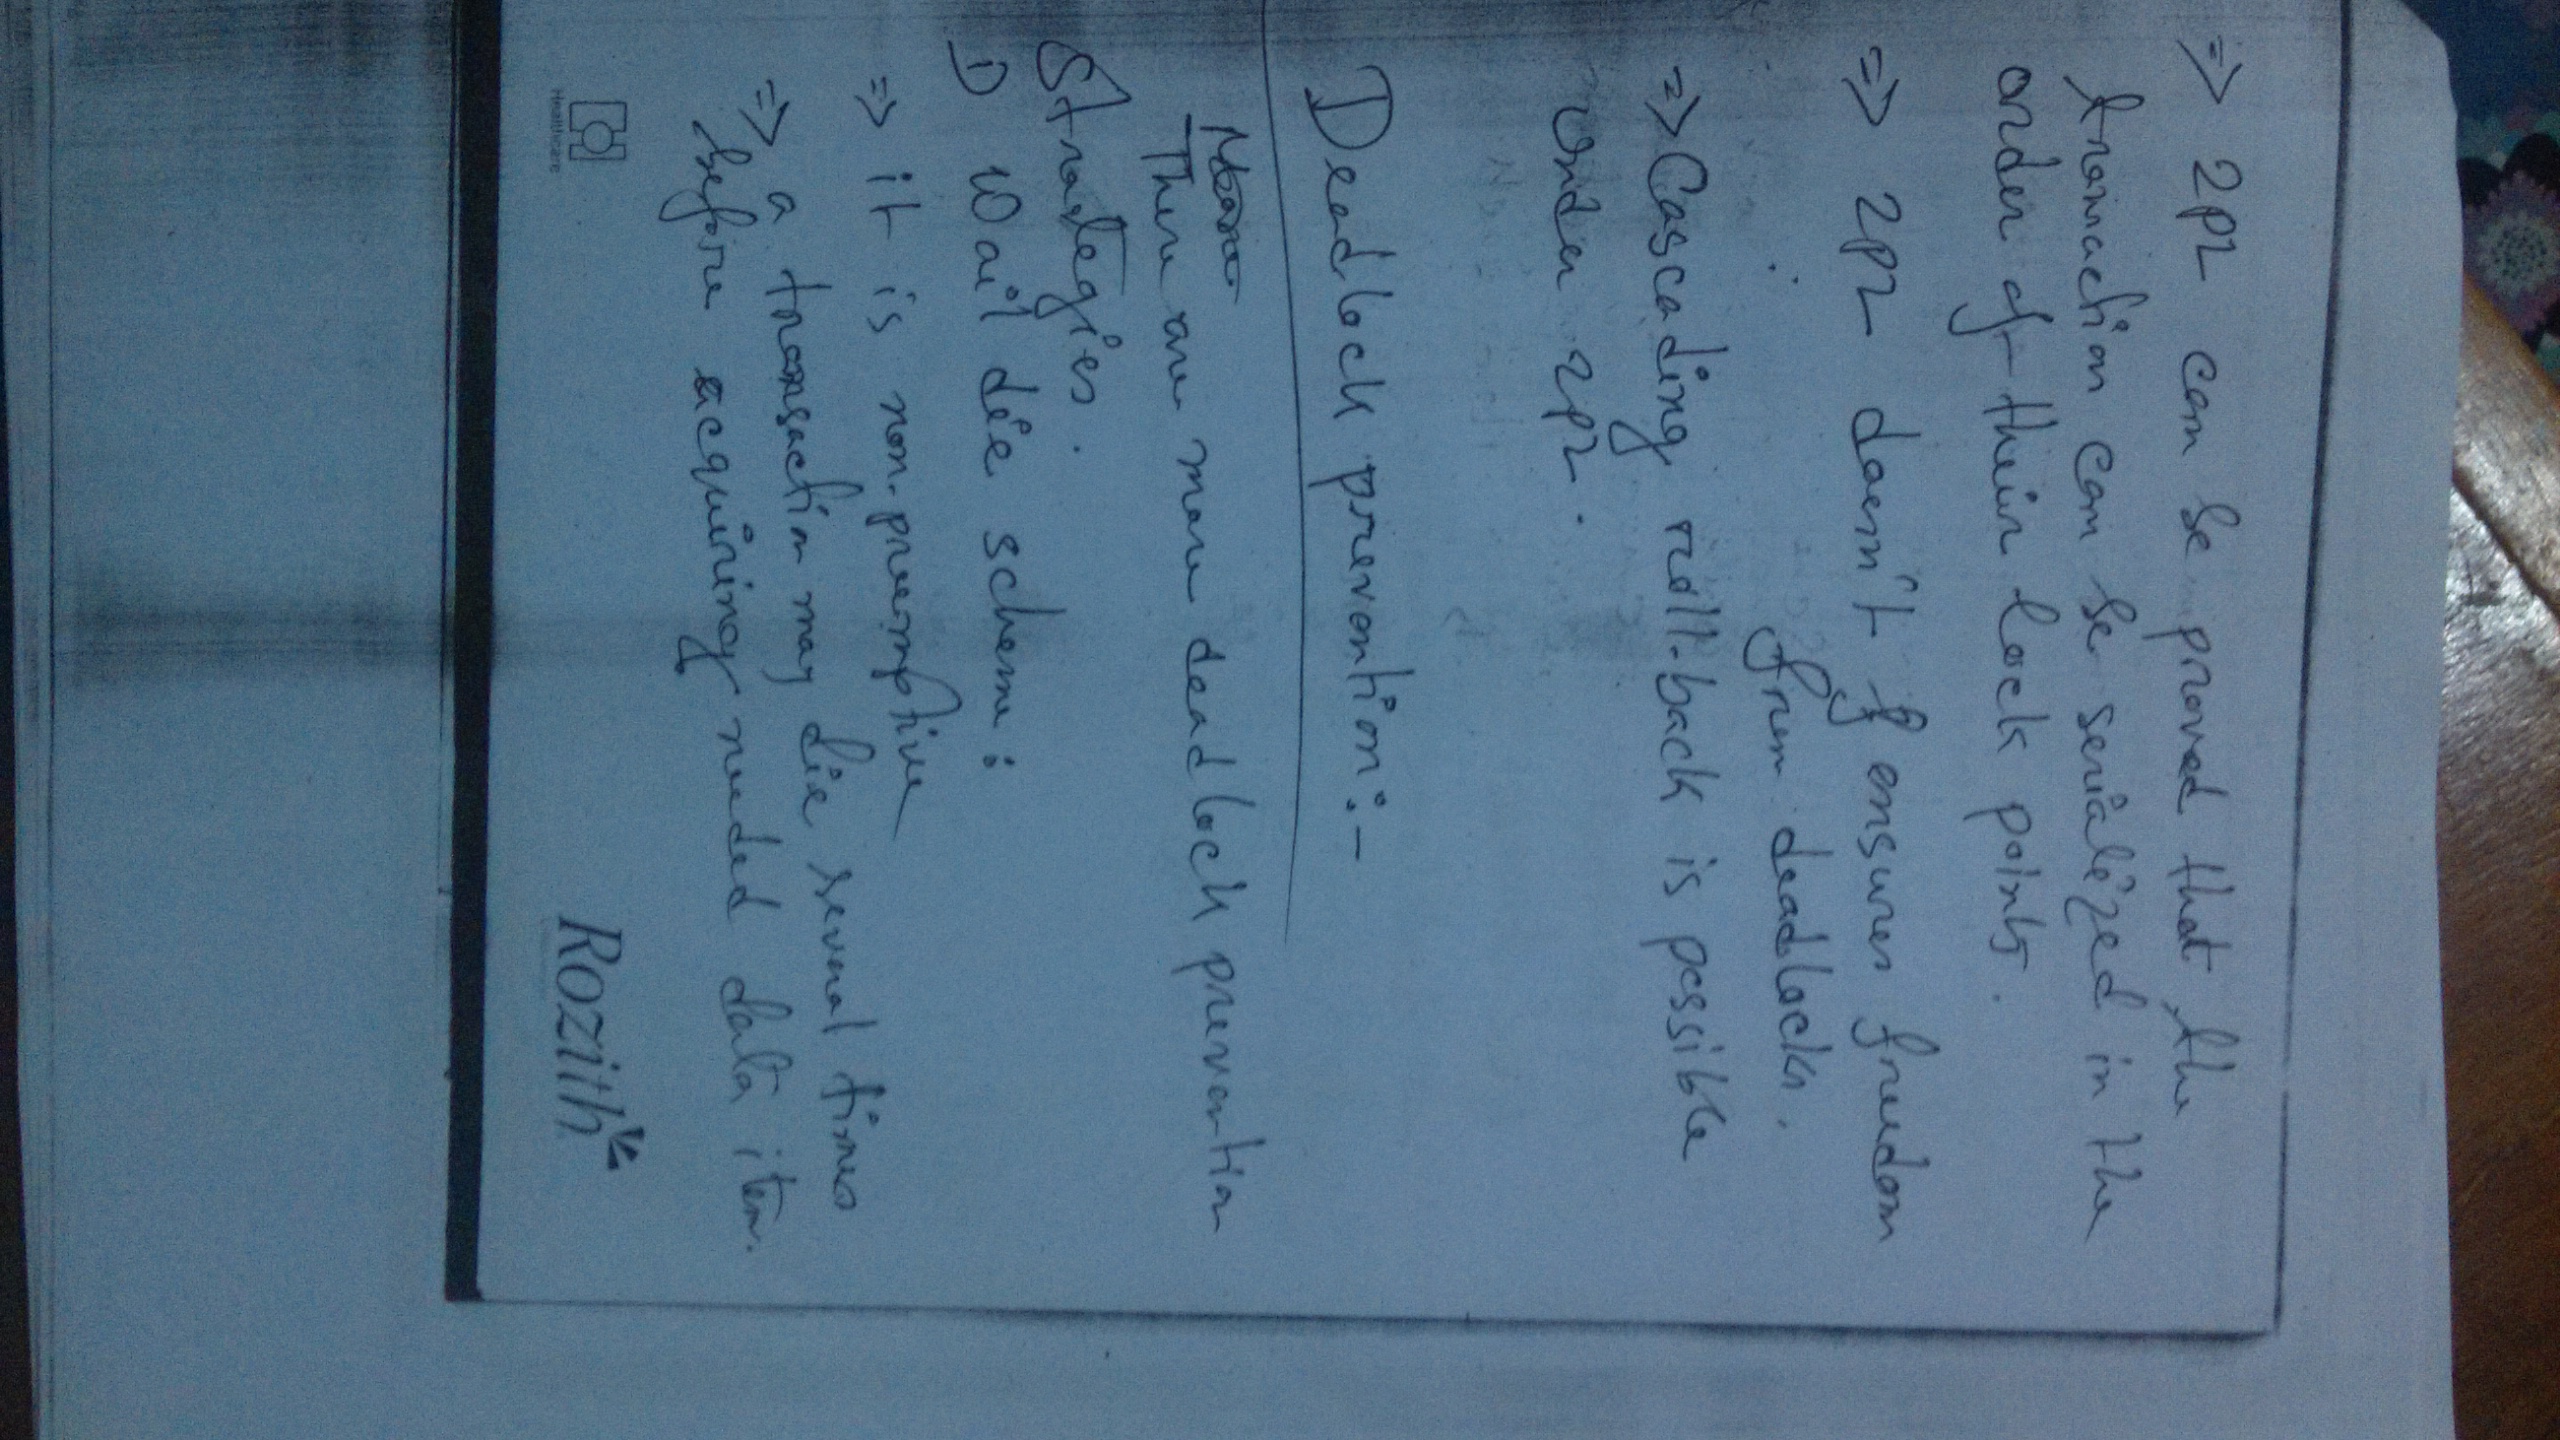 => 2PL can be proved that, the
transaction can be serialized in the
order of their lock points.
=> 2PL doesn't ensures freedom
from deadlocks.
=> Cascading roll-back is possible
under 2PL.
Deadlock prevention:-
There are more deadlock prevention
Strategies.
1) Wait die scheme:
=> it is non-preemptive
=> a transaction may die several times
before acquiring needed data item.
Healthcare
Rozith